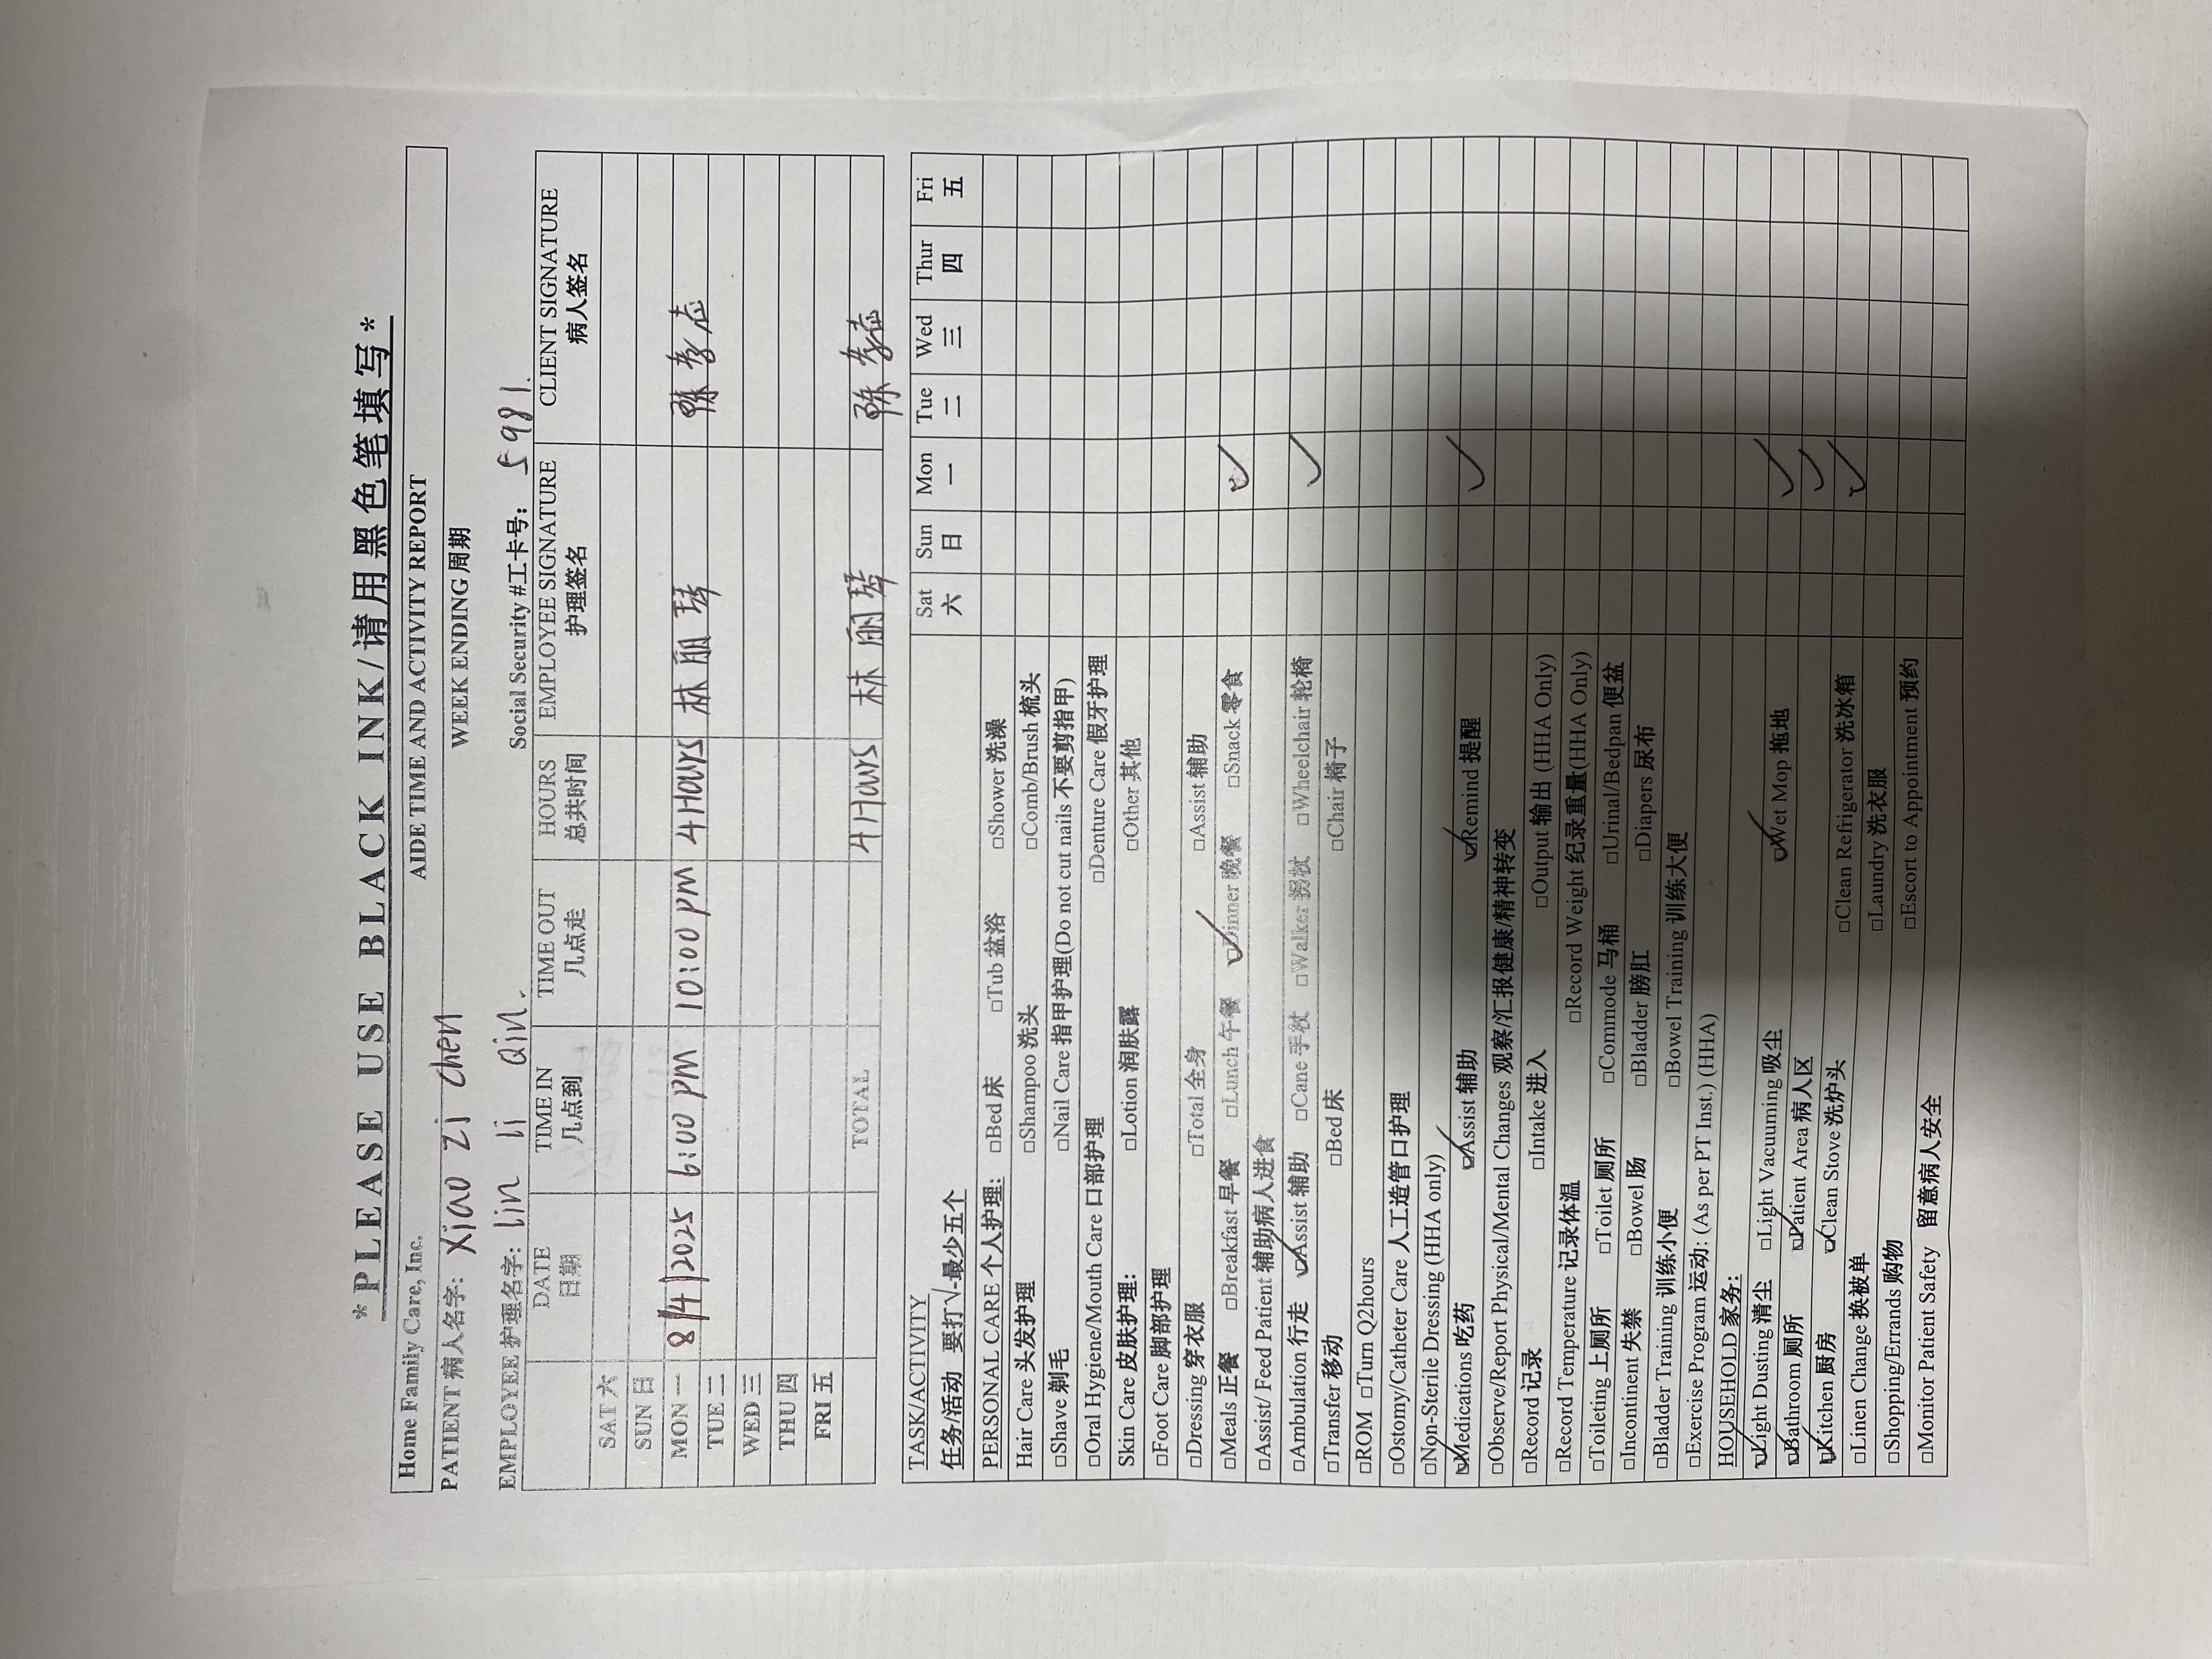 *PLEASE USE BLACK INK/请用黑色笔填写*
Home Family Care, Inc. AIDE TIME AND ACTIVITY REPORT
PATIENT 病人名字: Xiao Zi Chen WEEK ENDING 周期
EMPLOYEE 护理名字: lin li Qin. Social Security #工卡号: 5981.
DATE TIME IN TIME OUT HOURS EMPLOYEE SIGNATURE CLIENT SIGNATURE
日期 几点到 几点走 总共时间 护理签名 病人签名
SAT 六
SUN 日
MON 一 8/4/2025 6:00 PM 10:00 PM 4Hours 林丽琴
TUE 二
WED 三
THU 四
FRI 五
TOTAL 4Hours 林丽琴
TASK/ACTIVITY Sat Sun Mon Tue Wed Thur Fri
任务/活动 要打√-最少五个 六 日 一 二 三 四 五
PERSONAL CARE 个人护理: □Bed 床 □Tub 盆浴 □Shower 洗澡
Hair Care 头发护理 □Shampoo 洗头 □Comb/Brush 梳头
□Shave 剃毛 □Nail Care 指甲护理(Do not cut nails 不要剪指甲)
□Oral Hygiene/Mouth Care 口部护理 □Denture Care 假牙护理
Skin Care 皮肤护理: □Lotion 润肤露 □Other 其他
□Foot Care 脚部护理
□Dressing 穿衣服 □Total 全身 □Assist 辅助
□Meals 正餐 □Breakfast 早餐 □Lunch 午餐 ☑Dinner 晚餐 □Snack 零食 ✓
□Assist/ Feed Patient 辅助病人进食
□Ambulation 行走 ☑Assist 辅助 □Cane 手杖 □Walker 拐杖 □Wheelchair 轮椅 ✓
□Transfer 移动 □Bed 床 □Chair 椅子
□ROM □Turn Q2hours
□Ostomy/Catheter Care 人工造管口护理
□Non-Sterile Dressing (HHA only)
☑Medications 吃药 ☑Assist 辅助 ☑Remind 提醒 ✓
□Observe/Report Physical/Mental Changes 观察/汇报健康/精神转变
□Record 记录 □Intake 进入 □Output 输出 (HHA Only)
□Record Temperature 记录体温 □Record Weight 纪录重量(HHA Only)
□Toileting 上厕所 □Toilet 厕所 □Commode 马桶 □Urinal/Bedpan 便盆
□Incontinent 失禁 □Bowel 肠 □Bladder 膀肛 □Diapers 尿布
□Bladder Training 训练小便 □Bowel Training 训练大便
□Exercise Program 运动: (As per PT Inst.) (HHA)
HOUSEHOLD 家务:
☑Light Dusting 清尘 □Light Vacuuming 吸尘 ☑Wet Mop 拖地 ✓
☑Bathroom 厕所 ☑Patient Area 病人区 ✓
☑Kitchen 厨房 ☑Clean Stove 洗炉头 □Clean Refrigerator 洗冰箱 ✓
□Linen Change 换被单 □Laundry 洗衣服
□Shopping/Errands 购物 □Escort to Appointment 预约
□Monitor Patient Safety 留意病人安全